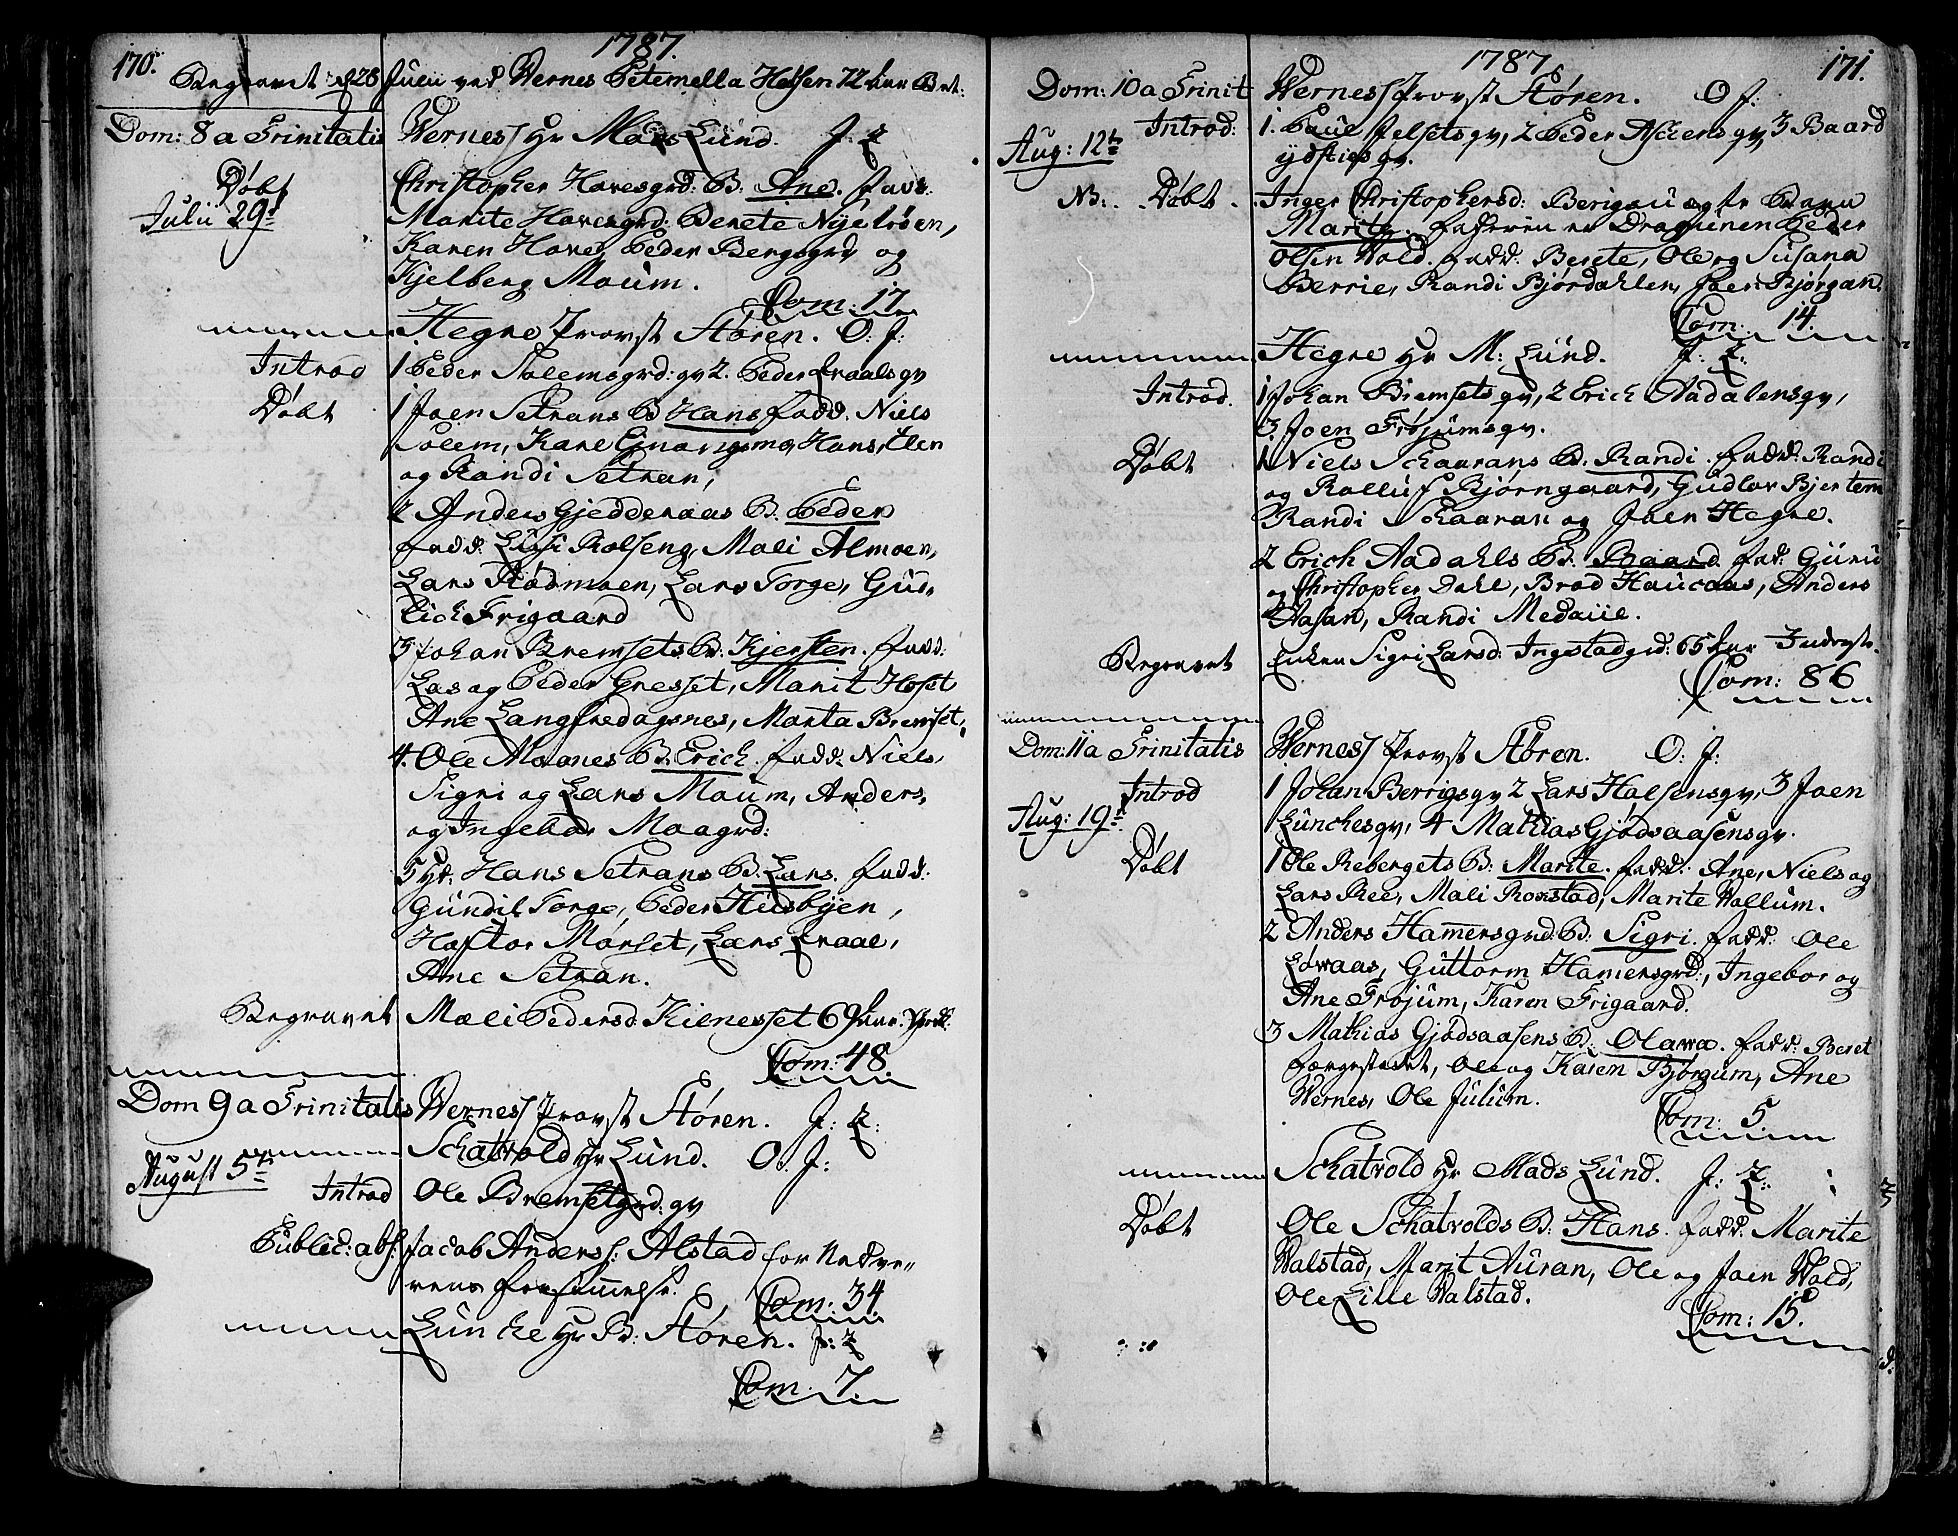 170.
1787.
Begravet d 28 Julii ved Wernes Peternella Halsen 72 Aar
Dom: 8 a Trinitatis Wernes Hr Mads Lund. J: L
Døbt Christopher Hovesgrd: B. Ane. fadd:
Julii 29d Marite Hovesgrd: Berete Nyeløen,
Karen Hove, Peder Bergsgrd og
Kjelberg Moum.
Com: 17
Hegre Provst Støren. O: J:
Introd 1 Peder Solemsgrd: gv 2. Peder Kraalsgv
Døbt 1 Joen Setrans B Hans fadd. Niels
Solem, Kari Hans, Elen
og Randi Setran,
2 Anders Gjeddenaas B. Peder
fadd. Lussi Rolseng, Mali Almoen,
Lars Lars Torge, Gud-
lich Frigaard
3 Johan Bremsets B: Kjersten. fadd:
Las og Peder Gresset, Marit Hoset
Ane Langfredagsnes, Marta Bremset,
4. Ole Moanes B. Erich. fadd: Niels
Sigri og Lars Moum, Anders,
og Ingebor Moagrd:
5 Hans Setrans B. Lars. fadd:
Gundil Torge, Peder Husbyen,
Haftor Morset, Lars Kraal,
Ane Setran.
Begravet Mali Pedersd. Kilnesset 69 Aar.
Com: 48.
Dom 9 a Trinitatis Wernes Provst Støren. J: L:
Schatvold Hr Lund. O. J:
August 5te
Introd Ole Bremsetgrd: gv
Public: abs: Jacob Anders: Alstad for Nadve-
rens forsømmelse.
Com: 34.
Lunche Hr B: Støren. J: L
Com. 7.
1787
171.
Dom: 10 a Trinit Wernes Provst Støren. O J:
Introd: 1. Paul Jelsets gv, 2 Peder Aschens gv, 3 Baard
Aug: 12te ydsties gv.
NB: Døbt Inger Christophersd: Berigau ægte Barn
Marite. faderen er Dragunen Peder
Olsen Vold. fadd: Berete, Ole og Susana
Berrie, Randi Bjørdahlen, Joen Bjørgan.
Com: 14.
Hegre Hr M: Lund. J: L:
Introd. 1 Johan Bremsets gv, 2 Erich Aadalens gv,
3. Joen Frøjums gv.
Døbt 1. Niels Schaarans B. Randi. fadd: Randi
og Rolluf Bjørngaard, Gudlov Bjertem
Randi Schaaran og Joen Hegre.
2 Erich Aadahls B. Baard. fad: Guru
og Christopher Dahl, Brod Haucaas, Anders
Aasan, Randi Medaue.
Begravet Enken Sigri Larsd: Ingstadgrd: 65 Aar
Com: 86
Dom: 11 a Trinitatis Wernes Provst Støren. O: J:
Introd 1 Johan Berrigs gv 2 Lars Halsens gv, 3 Joen
Aug: 19de Lunches gv, 4 Mathias Gjødsaasens gv.
Døbt 1 Ole Rebergets B: Marite. fadd: Ane, Niels og
Lars Ree, Mali Ronstad, Marite Vollum.
2 Anders Hamersgrd: B: Sigri. fadd: Ole
Løvaas, Guttorm Hamersgrd:, Ingebor og
Ane Frøjum, Karen Frigaard.
3 Mathias Gjødsaasens B: Olava. fadd: Beret
Ole og Karen Bjørgum, Ane
Wernes, Ole Julum.
Com: 5.
Schatvold Hr Mads Lund. J: L:
Døbt Ole Schatvolds B: Hans. fadd: Marite
Valstad, Marit Auran, Ole og Joen Vold,
Ole Lille Valstad.
Com: 15.